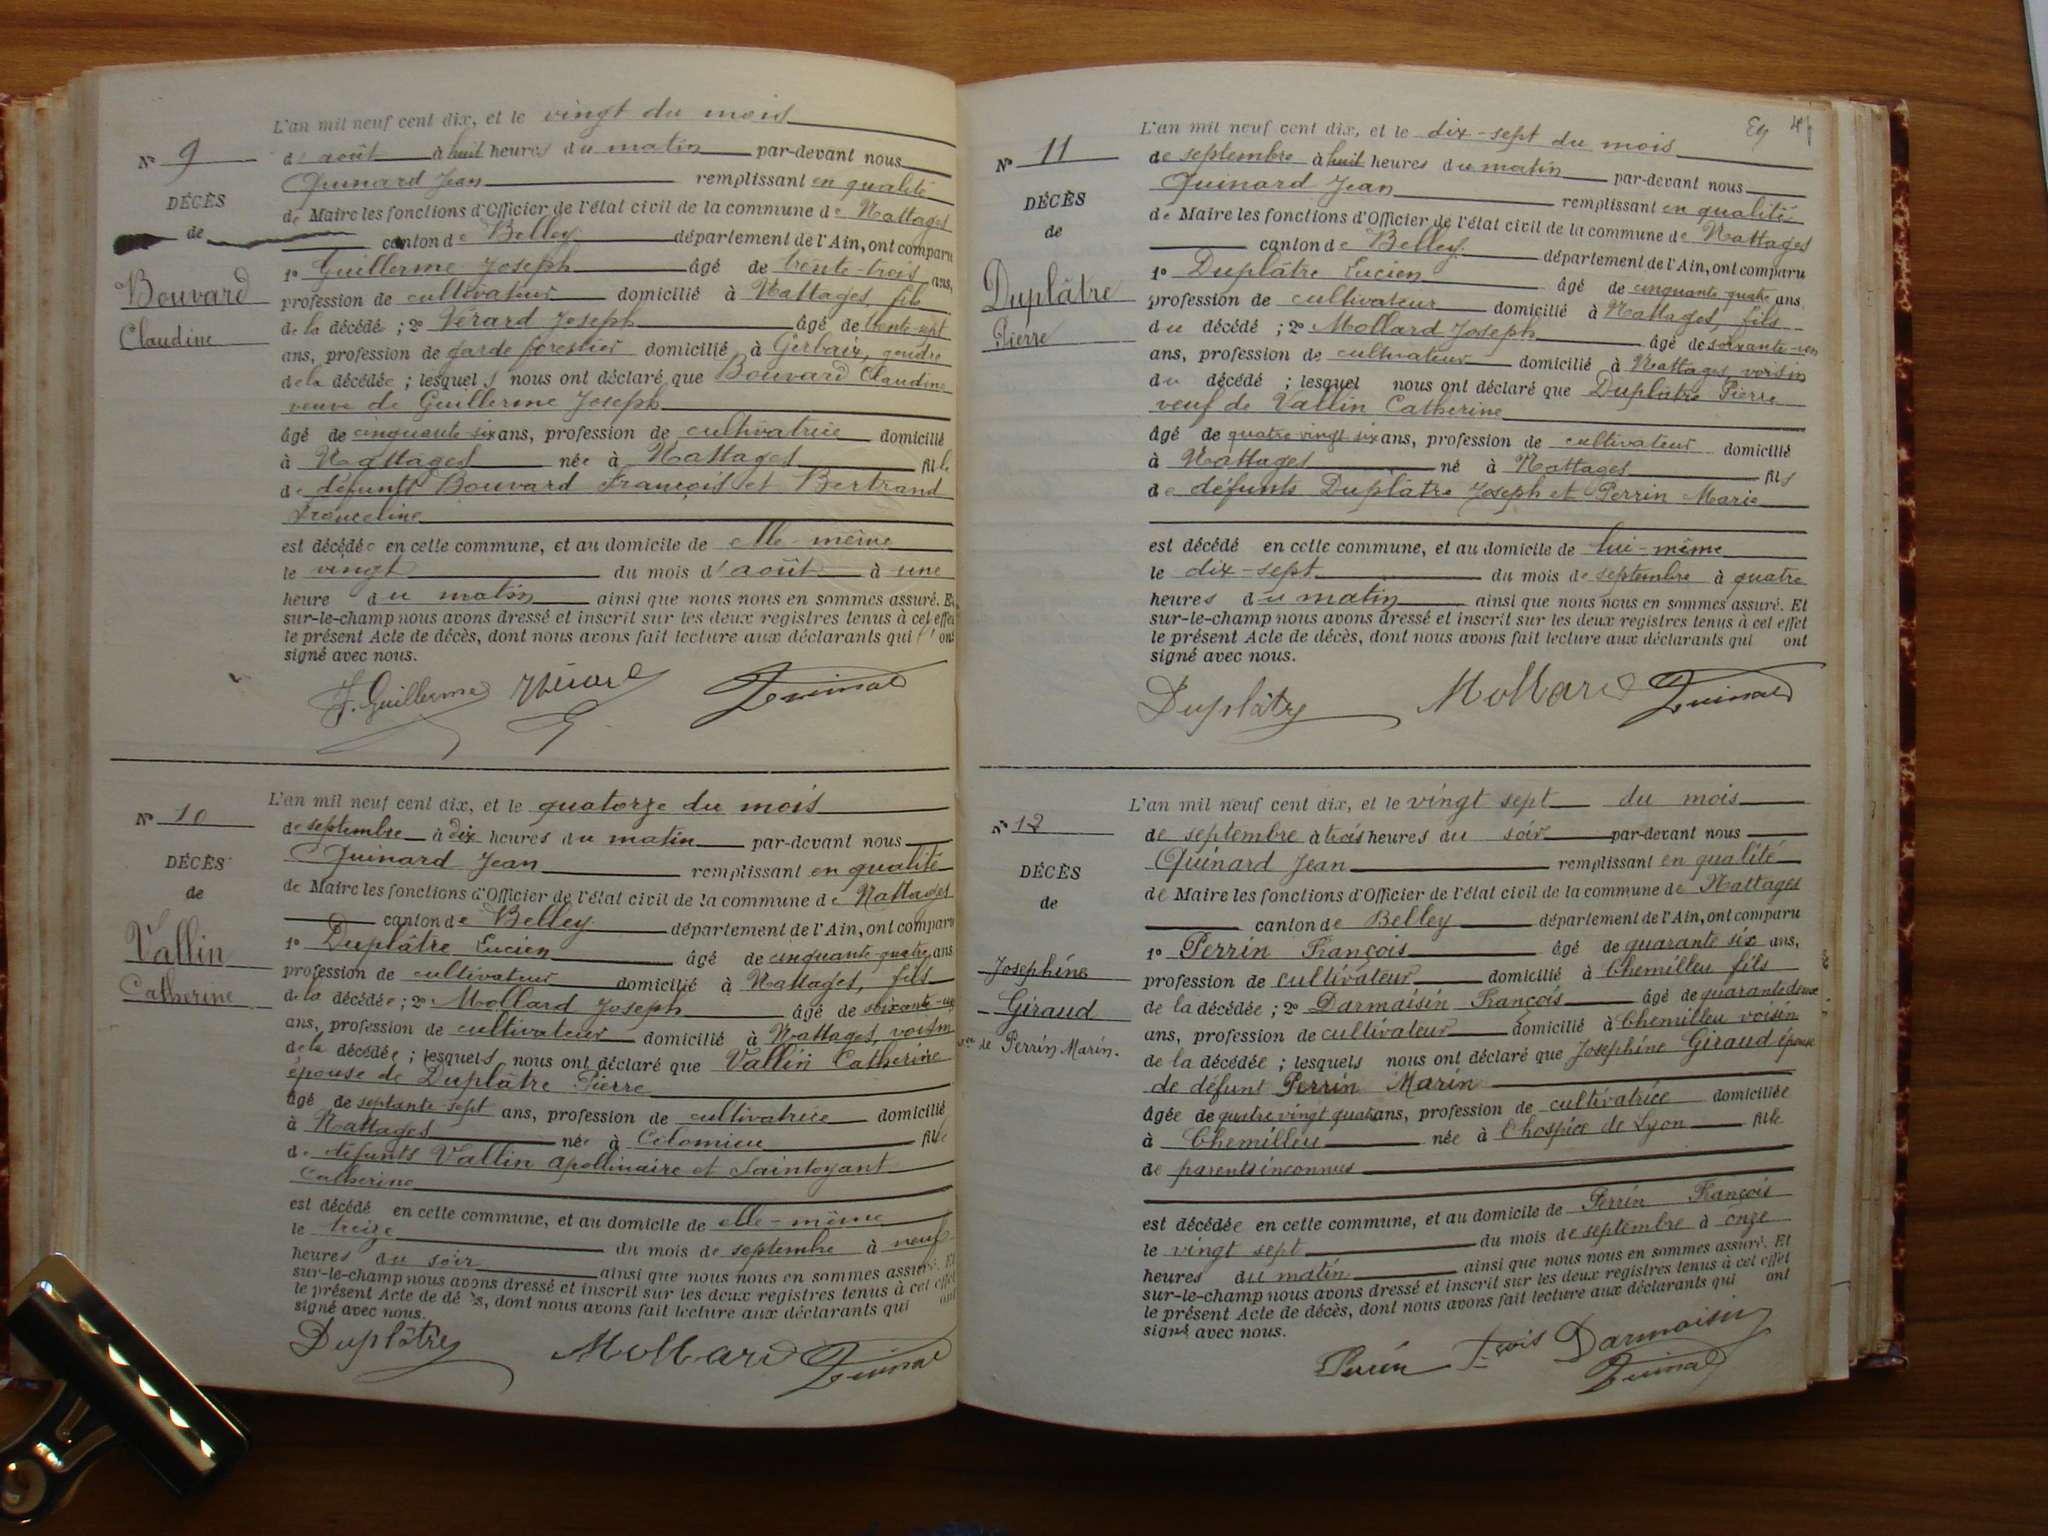 N° 9
DÉCÈS
de
Bouvard
Claudine
L'an mil neuf cent dix, et le vingt du mois
d'août à huit heures du matin par-devant nous
Quinard Jean remplissant en qualité
de Maire les fonctions d'Officier de l'état civil de la commune de Nattages
canton de Belley département de l'Ain, ont comparu
1° Guillerme Joseph âgé de trente-trois ans,
profession de cultivateur domicilié à Nattages, fils
de la décédée ; 2° Vérard Joseph âgé de trente-sept
ans, profession de garde forestier domicilié à Gerbaix, gendre
de la décédée ; lesquels nous ont déclaré que Bouvard Claudine
veuve de Guillerme Joseph
âgé de cinquante-six ans, profession de cultivatrice domicilié
à Nattages née à Nattages fille
de défunts Bouvard François et Bertrand
Franceline
est décédée en cette commune, et au domicile de elle-même
le vingt du mois d'août à une
heure du matin ainsi que nous nous en sommes assuré. Et
sur-le-champ nous avons dressé et inscrit sur les deux registres tenus à cet effet
le présent Acte de décès, dont nous avons fait lecture aux déclarants qui l'ont
signé avec nous.
J. Guillerme Vérard Quinard
N° 10
DÉCÈS
de
Vallin
Catherine
L'an mil neuf cent dix, et le quatorze du mois
de septembre à dix heures du matin par-devant nous
Quinard Jean remplissant en qualité
de Maire les fonctions d'Officier de l'état civil de la commune de Nattages
canton de Belley département de l'Ain, ont comparu
1° Duplâtre Lucien âgé de cinquante-quatre ans
profession de cultivateur domicilié à Nattages, fils
de la décédée ; 2° Mollard Joseph âgé de soixante-un
ans, profession de cultivateur domicilié à Nattages, voisin
de la décédée ; lesquels nous ont déclaré que Vallin Catherine
épouse de Duplâtre Pierre
âgé de septante-sept ans, profession de cultivatrice domicilié
à Nattages née à Colomieu fille
de défunts Vallin Apollinaire et Saintoyant
Catherine
est décédé en cette commune, et au domicile de elle-même
le treize du mois de septembre à neuf
heures du soir ainsi que nous nous en sommes assuré. Et
sur-le-champ nous avons dressé et inscrit sur les deux registres tenus à cet effet
le présent Acte de décès, dont nous avons fait lecture aux déclarants qui ont
signé avec nous.
Duplâtre Mollard Quinard
N° 11
DÉCÈS
de
Duplâtre
Pierre
L'an mil neuf cent dix, et le dix-sept du mois
de septembre à huit heures du matin par-devant nous
Quinard Jean remplissant en qualité
de Maire les fonctions d'Officier de l'état civil de la commune de Nattages
canton de Belley département de l'Ain, ont comparu
1° Duplâtre Lucien âgé de cinquante-quatre ans
profession de cultivateur domicilié à Nattages, fils
du décédé ; 2° Mollard Joseph âgé de
ans, profession de cultivateur domicilié à Nattages, voisin
du décédé ; lesquel nous ont déclaré que Duplâtre Pierre
veuf de Vallin Catherine
âgé de quatre vingt six ans, profession de cultivateur domicilié
à Nattages né à Nattages fils
de défunts Duplâtre Joseph et Perrin Marie
est décédé en cette commune, et au domicile de lui-même
le dix-sept du mois de septembre à quatre
heures du matin ainsi que nous nous en sommes assuré. Et
sur-le-champ nous avons dressé et inscrit sur les deux registres tenus à cet effet
le présent Acte de décès, dont nous avons fait lecture aux déclarants qui ont
signé avec nous.
Duplâtre Mollard Quinard
N° 12
DÉCÈS
de
Joséphine
Giraud
de Perrin Marin.
L'an mil neuf cent dix, et le vingt sept du mois
de septembre à trois heures du soir par-devant nous
Quinard Jean remplissant en qualité
de Maire les fonctions d'Officier de l'état civil de la commune de Nattages
canton de Belley département de l'Ain, ont comparu
1° Perrin François âgé de quarante six ans,
profession de cultivateur domicilié à Chemilleu fils
de la décédée ; 2° Darmaisin François âgé de quarante deux
ans, profession de cultivateur domicilié à Chemilleu voisin
de la décédée ; lesquels nous ont déclaré que Joséphine Giraud épouse
de défunt Perrin Marin
âgée de quatre vingt quatre ans, profession de cultivatrice domiciliée
à Chemilleu née à l'hospice de Lyon fille
de parents inconnus
est décédée en cette commune, et au domicile de Perrin François
le vingt sept du mois de septembre à onze
heures du matin ainsi que nous nous en sommes assuré. Et
sur-le-champ nous avons dressé et inscrit sur les deux registres tenus à cet effet
le présent Acte de décès, dont nous avons fait lecture aux déclarants qui ont
signé avec nous.
Perrin fçois Darmaisin
Quinard